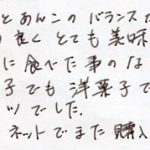 とあんこのバランスが
良くとても美味
に食べた事のな
子でも洋菓子で
ツでした。
ネットでまた購入